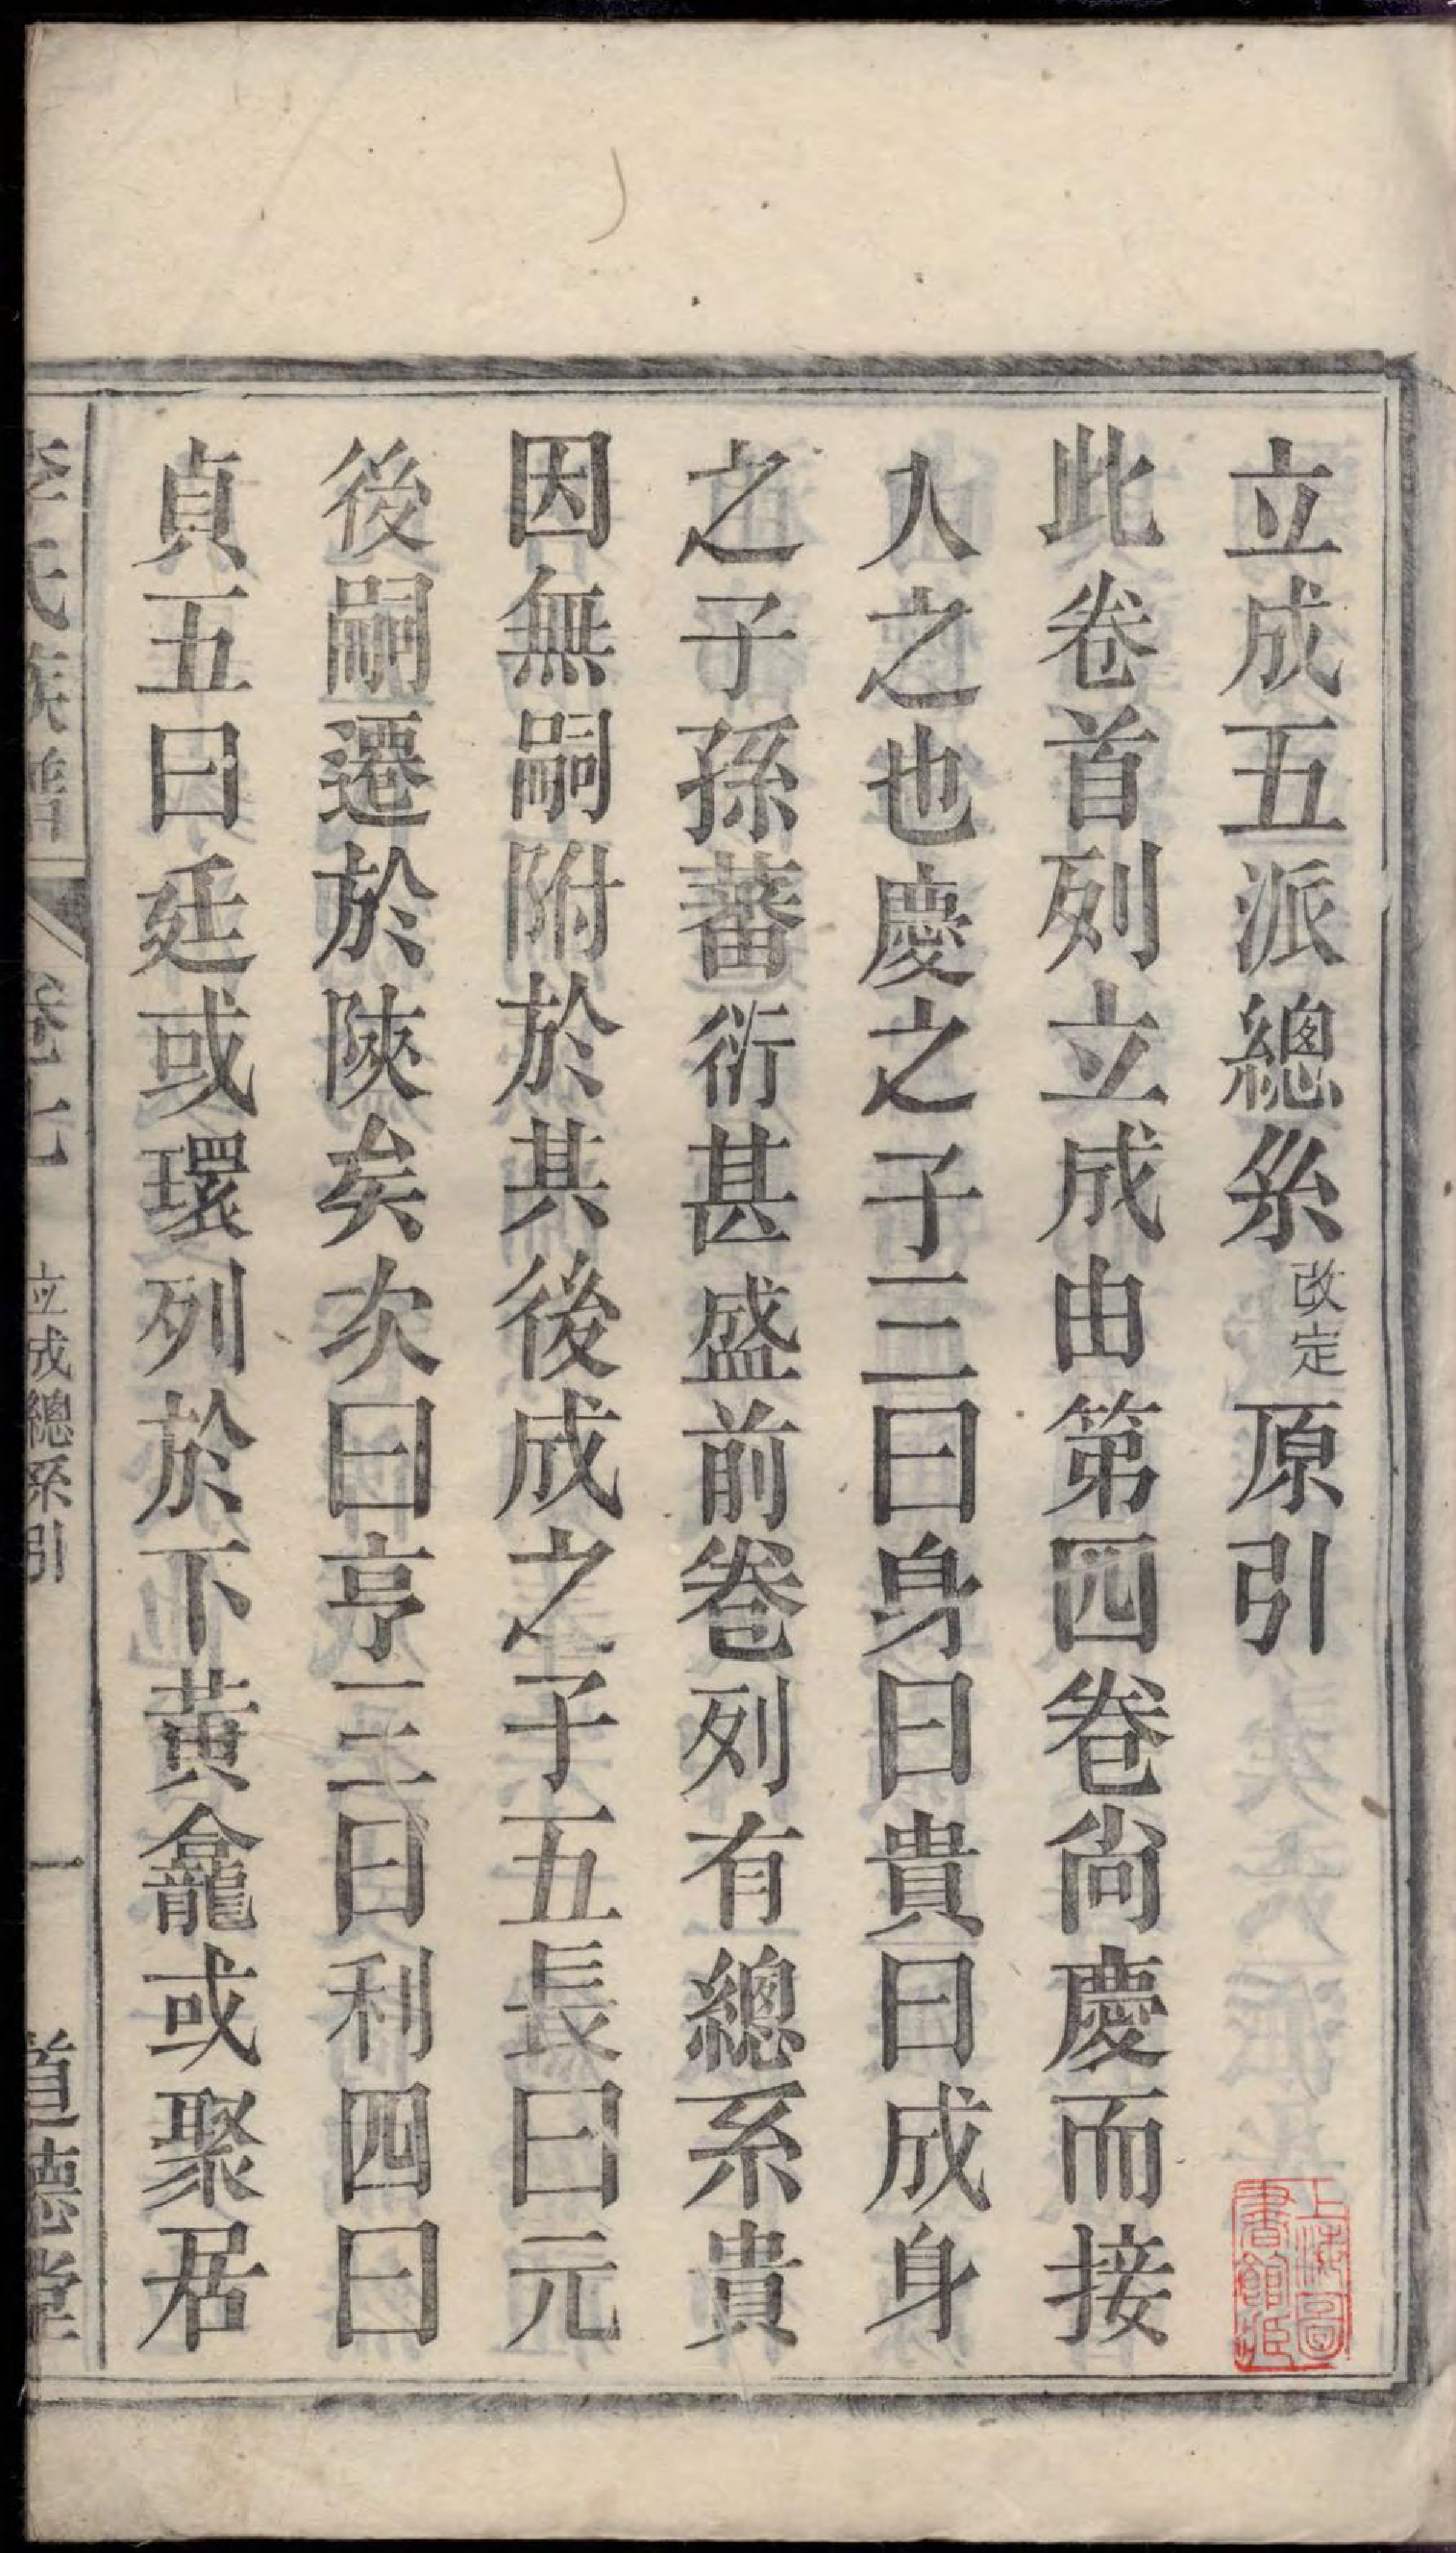 立成五派總系改定原引
此卷首列立成由第四卷尚慶而接
人之也慶之子三曰身曰貴曰成身
之子孫蕃衍甚盛前卷列有總系貴
因無嗣附於其後成之子五長曰元
後嗣遷於陝矣次曰亨三曰利四曰
貞五曰廷或環列於下黃龕或聚居
李氏族譜
卷七
立成總系引
一
道德堂
上海圖
書館藏